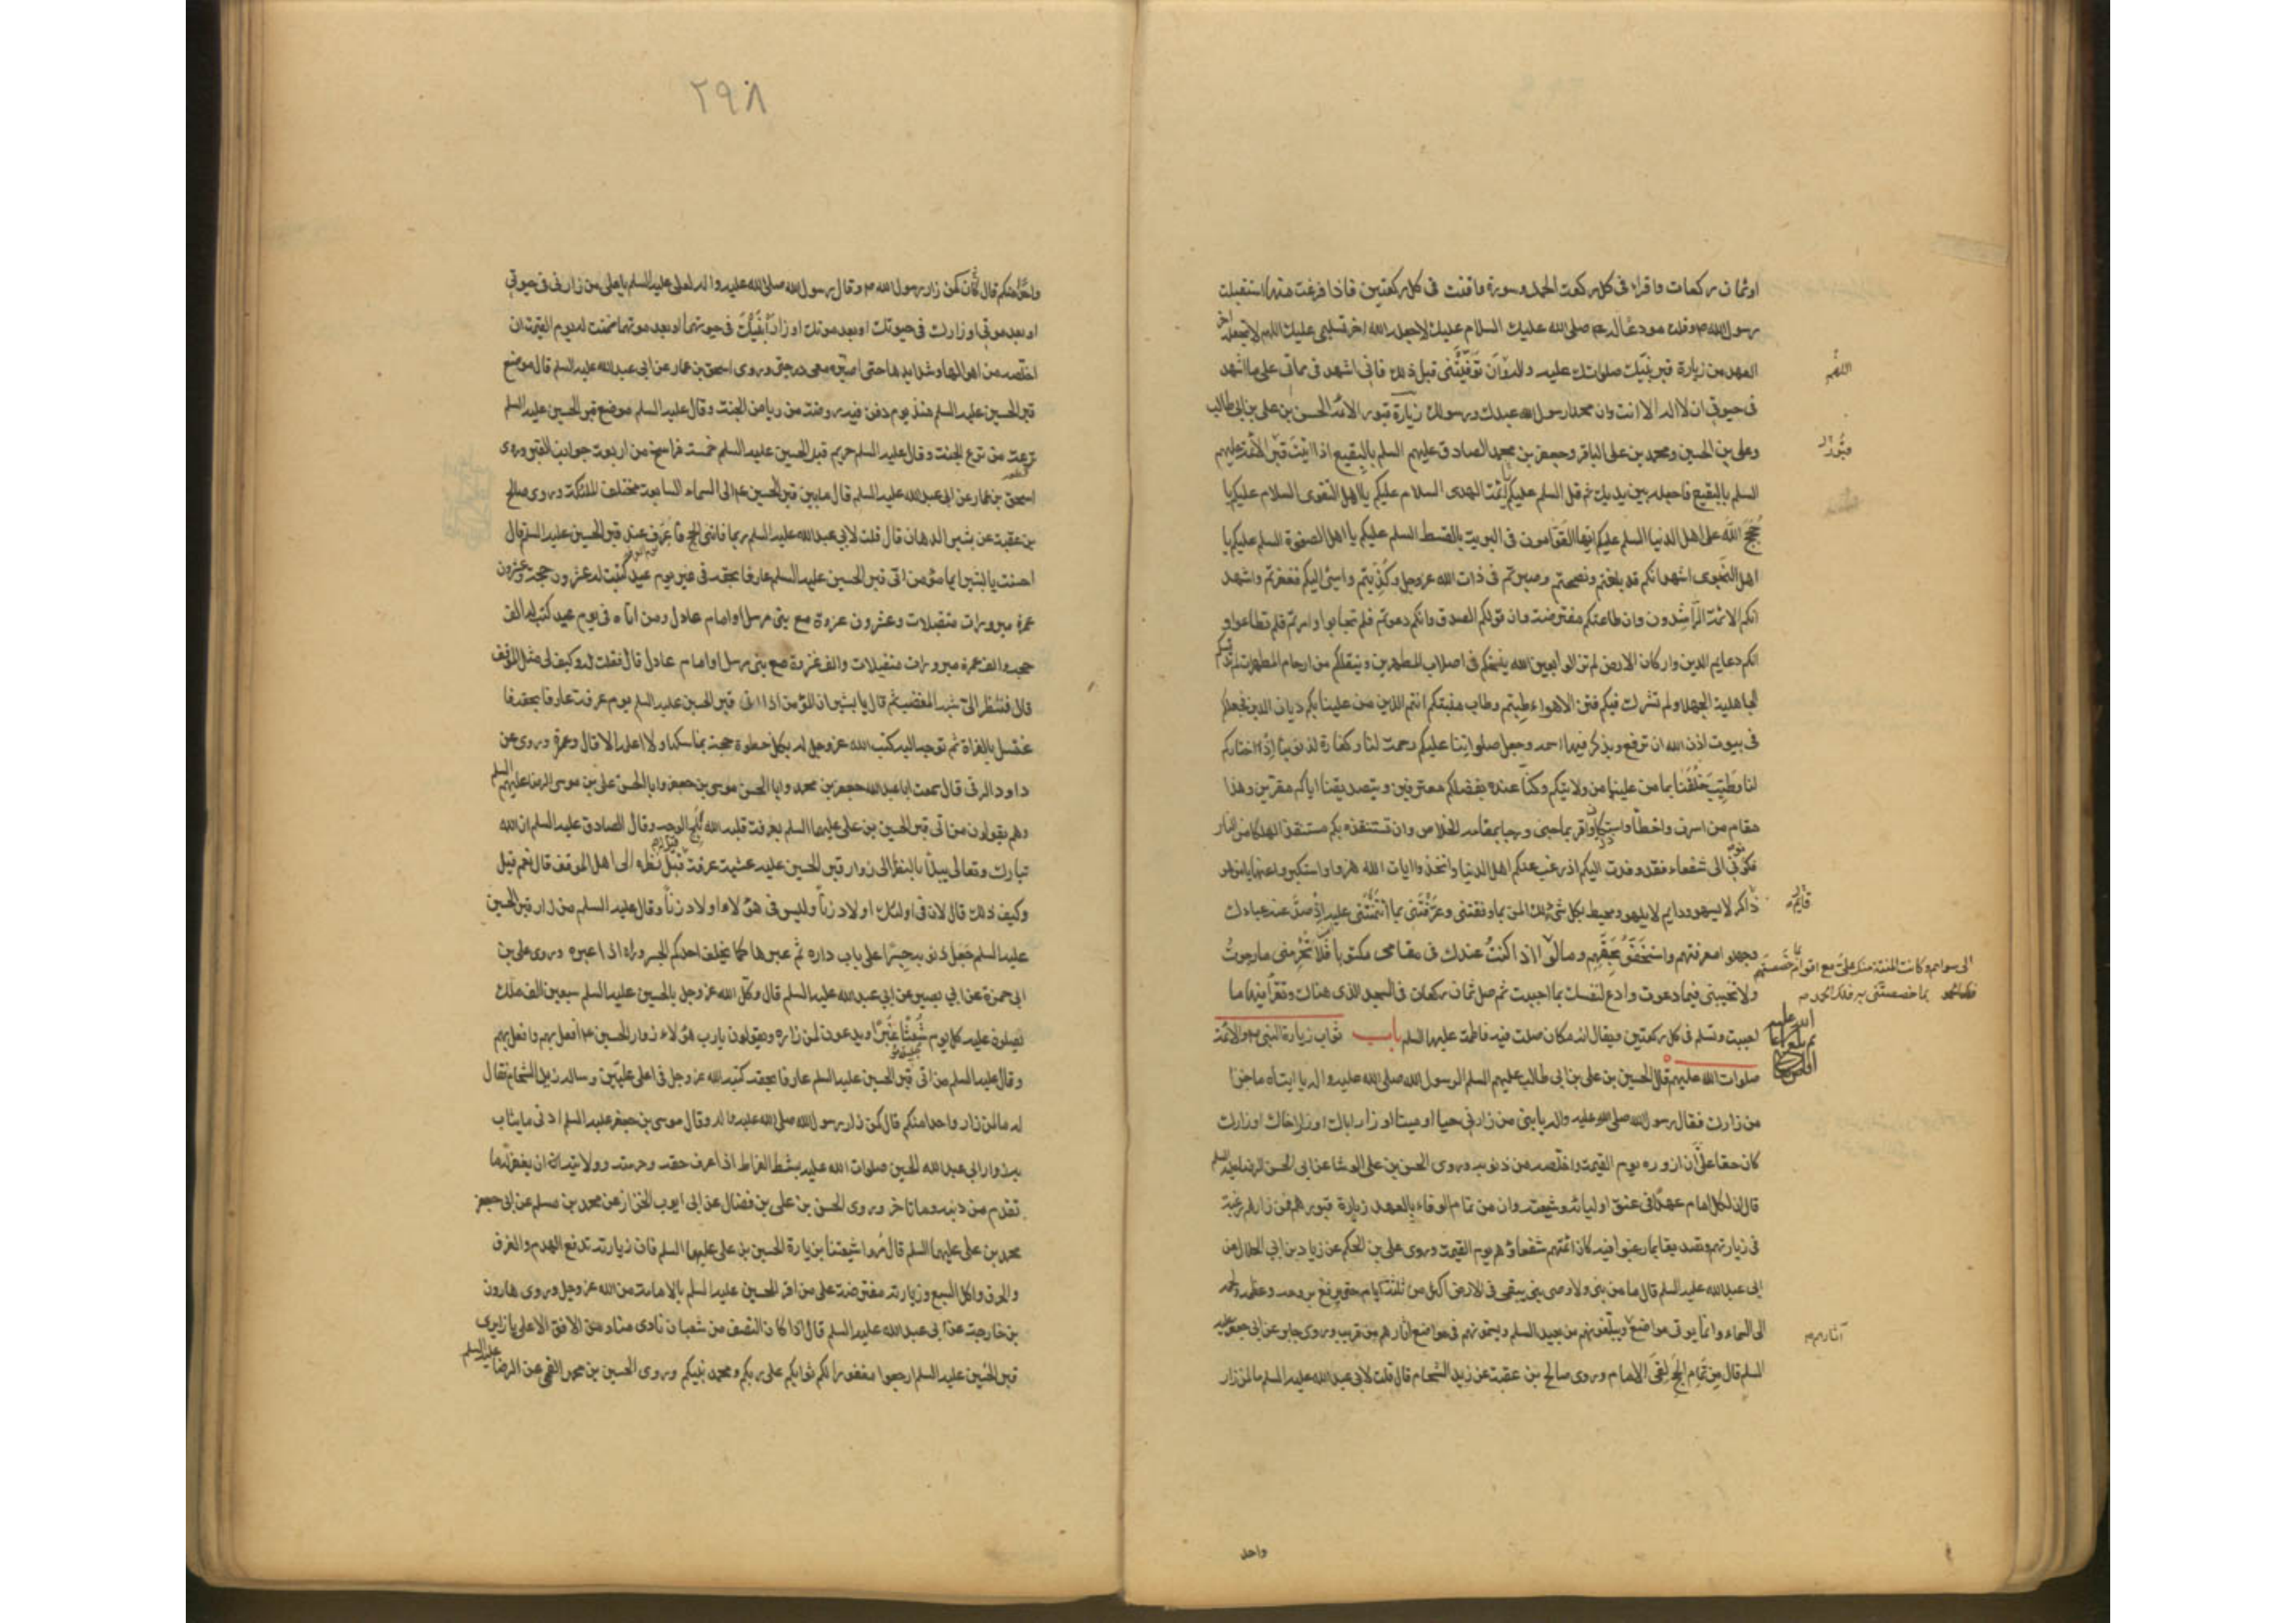 او ثمان ركعات واقراء فى كل ركعة الحمد وسورة واقنت فى كل ركعتين فاذا فرغت منها استقبلت
رسول الله وقلت مودعا له صلى الله عليك السلام عليك لا جعله الله اخر تسليمى عليك اللهم لا تجعله اخر
العهد من زيارة قبر نبيك صلواتك عليه واله وان توفيتنى قبل ذلك فانى اشهد فى مماتى على ما اشهد
اللهم
فى حيوتى ان لا اله الا انت وان محمدا رسول الله عبدك ورسولك زيارة قبور الائمة الحسن بن على بن ابى طالب
وعلى بن الحسين ومحمد بن على الباقر وجعفر بن محمد الصادق عليهم السلم بالبقيع اذا اتيت قبر الائمة عليهم
قبور
السلم بالبقيع فاجعله بين يديك ثم قل السلم عليكم ائمة الهدى السلام عليكم يا اهل التقوى السلام عليكم يا
حجج الله على اهل الدنيا السلم عليكم ايها القوامون فى البرية بالقسط السلم عليكم يا اهل الصفوة السلم عليكم يا
اهل النجوى اشهد انكم قد بلغتم ونصحتم وصبرتم فى ذات الله عز وجل وكذبتم واسئ اليكم فغفرتم واشهد
انكم الائمة الراشدون وان طاعتكم مفترضة وان قولكم الصدق وانكم دعوتم فلم تجابوا وامرتم فلم تطاعوا و
انكم دعايم الدين واركان الارض لم تزالوا بعين الله ينسخكم فى اصلاب المطهرين وينقلكم من ارحام المطهرات لم تدنسكم
الجاهلية الجهلاء ولم تشرك فيكم فتن الاهواء طبتم وطاب منبتكم انتم الذين من علينا بكم ديان الدين فجعلكم
فى بيوت اذن الله ان ترفع ويذكر فيها اسمه وجعل صلواتنا عليكم رحمة لنا وكفارة لذنوبنا اذا اختاركم
لنا وطيب خلقنا بما من علينا من ولايتكم وكنا عنده بفضلكم معترفين وبتصديقنا اياكم مقرين وهذا
مقام من اسرف واخطأ واستكان واقر بما جنى ورجا بمقامه الخلاص وان يستنقذه بكم مستنقذ الهلكا من النار
فكونوا لى شفعاء فقد وفدت اليكم اذ رغب عنكم اهل الدنيا واتخذوا ايات الله هزوا واستكبروا عنها يا من هو
ذاكر لا يسهو ودايم لا يلهو ومحيط بكل شئ لك المن بما وفقتنى وعرفتنى بما ائتمنتنى عليه اذ صد عنه عبادك
قايم
وجهلوا معرفتهم واستخفوا بحقهم ومالوا اذا كنت عندك فى مقامى مكتوبا فلا تحرمنى ما رجوت
الى سواهم وكانت المنة منك على مع اقوام خصصتهم بما خصصتنى به فلك الحمد
ولا تخيبنى فيما دعوت وادع لنفسك بما احببت ثم صل ثمان ركعات فى المسجد الذى هناك وتقرأ فيها ما
احببت وتسلم فى كل ركعتين ويقال انه مكان صلت فيه فاطمة عليها السلم باب ثواب زيارة النبى والائمة
صلوات الله عليهم قال الحسين بن على بن ابى طالب عليهم السلم لرسول الله صلى الله عليه واله يا ابتاه ما جزا
من زارك فقال رسول الله صلى الله عليه واله يا بنى من زارنى حيا او ميتا او زار اباك او زار اخاك او زارك
كان حقا على ان ازوره يوم القيمة واخلصه من ذنوبه وروى الحسن بن على الوشا عن ابى الحسن الرضا عليه السلم
قال ان لكل امام عهدا فى عنق اوليائه وشيعته وان من تمام الوفاء بالعهد زيارة قبورهم فمن زارهم رغبة
فى زيارتهم وتصديقا بما رغبوا فيه كان ائمتهم شفعاؤهم يوم القيمة وروى على بن الحكم عن زياد بن ابى الحلال عن
ابى عبد الله عليه السلم قال ما من نبى ولا وصى نبى يبقى فى الارض اكثر من ثلثة ايام حتى يرفع بروحه وعظمه ولحمه
الى السماء وانما يؤتى مواضع ويبلغونهم من بعيد السلم ويسمعونهم فى مواضع اثارهم من قريب وروى جابر عن ابى جعفر عليه
آثارهم
السلم قال من تمام الحج لقى الامام وروى صالح بن عقبة عن زيد الشحام قال قلت لابى عبد الله عليه السلم ما لمن زار
واحد
٢٩٨
واحدا منكم قال كان كمن زار رسول الله وقال رسول الله صلى الله عليه واله لعلى عليه السلم يا على من زارنى فى حيوتى
او بعد موتى او زارك فى حيوتك او بعد موتك او زار ابنيك فى حيوتهما او بعد موتهما ضمنت له يوم القيمة ان
اخلصه من اهوالها وشدايدها حتى اصيره معى فى درجتى وروى اسحق بن عمار عن ابى عبد الله عليه السلم قال موضع
قبر الحسين عليه السلم منذ يوم دفن فيه روضة من رياض الجنة وقال عليه السلم موضع قبر الحسين عليه السلم
ترعة من ترع الجنة وقال عليه السلم حريم قبر الحسين عليه السلم خمسة فراسخ من اربعة جوانب القبر وروى
اسحق بن عمار عن ابى عبد الله عليه السلم قال ما بين قبر الحسين الى السماء السابعة مختلف الملئكة وروى صالح
بن عقبة عن بشير الدهان قال قلت لابى عبد الله عليه السلم ربما فاتنى الحج فاعرف عند قبر الحسين عليه السلم قال
احسنت يا بشير ايما مؤمن اتى قبر الحسين عليه السلم عارفا بحقه فى غير يوم عيد كتبت له عشرون حجة وعشرون
عمرة مبرورات متقبلات وعشرون غزوة مع نبى مرسل او امام عادل ومن اتاه فى يوم عيد كتب له الف
حجة والف عمرة مبرورات متقبلات والف غزوة مع نبى مرسل او امام عادل قال فقلت له وكيف لى بمثل الموقف
قال فنظر الى شبه المغضب ثم قال يا بشير ان المؤمن اذا اتى قبر الحسين عليه السلم يوم عرفة عارفا بحقه فا
غتسل بالفراة ثم توجه اليه كتب الله عز وجل له بكل خطوة حجة بمناسكها ولا اعلمه الا قال وعمرة وروى عن
داود الرقى قال سمعت ابا عبد الله جعفر بن محمد وابا الحسن موسى بن جعفر وابا الحسن على بن موسى الرضا عليهم السلم
وهم يقولون من اتى قبر الحسين بن على عليهما السلم بعرفة قلبه الله ثلج الوجه وقال الصادق عليه السلم ان الله
تبارك وتعالى يبدأ بالنظر الى زوار قبر الحسين عليه عشية عرفة قبل نظره الى اهل الموقف قال نعم قيل
وكيف ذلك قال لان فى اولئك اولاد زنا وليس فى هؤلاء اولاد زنا وقال عليه السلم من زار قبر الحسين
عليه السلم جعل ذنوبه جسرا على باب داره ثم عبرها كما يخلف احدكم الجسر وراه اذا عبره وروى على بن
ابى حمزة عن ابى بصير عن ابى عبد الله عليه السلم قال وكل الله عز وجل بالحسين عليه السلم سبعين الف ملك
يصلون عليه كل يوم شعثا غبرا ويدعون لمن زاره ويقولون يارب هؤلاء زوار الحسين افعل بهم وافعل بهم
وقال عليه السلم من اتى قبر الحسين عليه السلم عارفا بحقه كتبه الله عز وجل فى اعلى عليين وساله زيد الشحام فقال
له ما لمن زار واحدا منكم قال كمن زار رسول الله صلى الله عليه واله وقال موسى بن جعفر عليه السلم ادنى ما يثاب
به زوار ابى عبد الله الحسين صلوات الله عليه بشط الفراط اذا عرف حقه وحرمته وولايته ان يغفر له ما
تقدم من ذنبه وما تاخر وروى الحسن بن على بن فضال عن ابى ايوب الخزاز عن محمد بن مسلم عن ابى جعفر
محمد بن على عليهما السلم قال مروا شيعتنا بزيارة الحسين بن على عليهما السلم فان زيارته تدفع الهدم والغرق
والحرق واكل السبع وزيارته مفترضة على من اقر للحسين عليه السلم بالامامة من الله عز وجل وروى هارون
بن خارجة عن ابى عبد الله عليه السلم قال اذا كان النصف من شعبان نادى مناد من الافق الاعلى يا زايرى
قبر الحسين عليه السلم ارجعوا مغفورا لكم ثوابكم على ربكم ومحمد نبيكم وروى الحسين بن محمد القمى عن الرضا عليه السلم